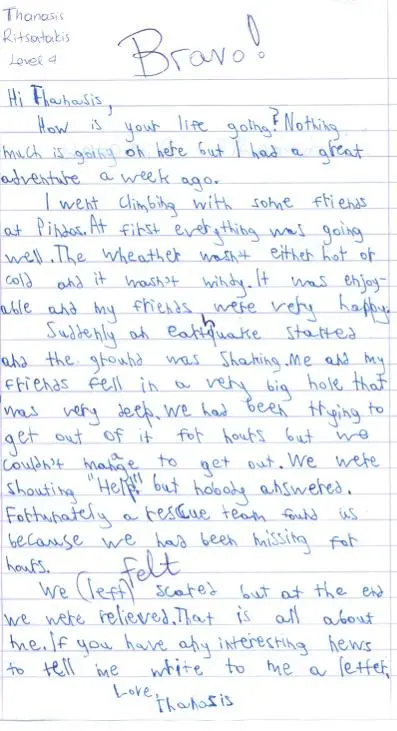 Thanasis
Ritsatakis
Level 4
Bravo!
Hi Thanasis,
How is your life going? Nothing
much is going on here but I had a great
adventure a week ago.
I went climbing with some friends
at Pindos. At first everything was going
well. The wheather wasn't either hot or
cold and it wasn't windy. It was enjoy-
able and my friends were very happy.
Suddenly an earthquake started
and the ground was shaking. Me and my
friends fell in a very big hole that
was very deep. We had been trying to
get out of it for hours but we
couldn't manage to get out. We were
shouting "Help!" but nobody answered.
Fortunately a rescue team found us
because we had been missing for
hours.
felt
We (left) scared but at the end
we were relieved. That is all about
me. If you have any interesting news
to tell me write to me a letter.
Love,
Thanasis